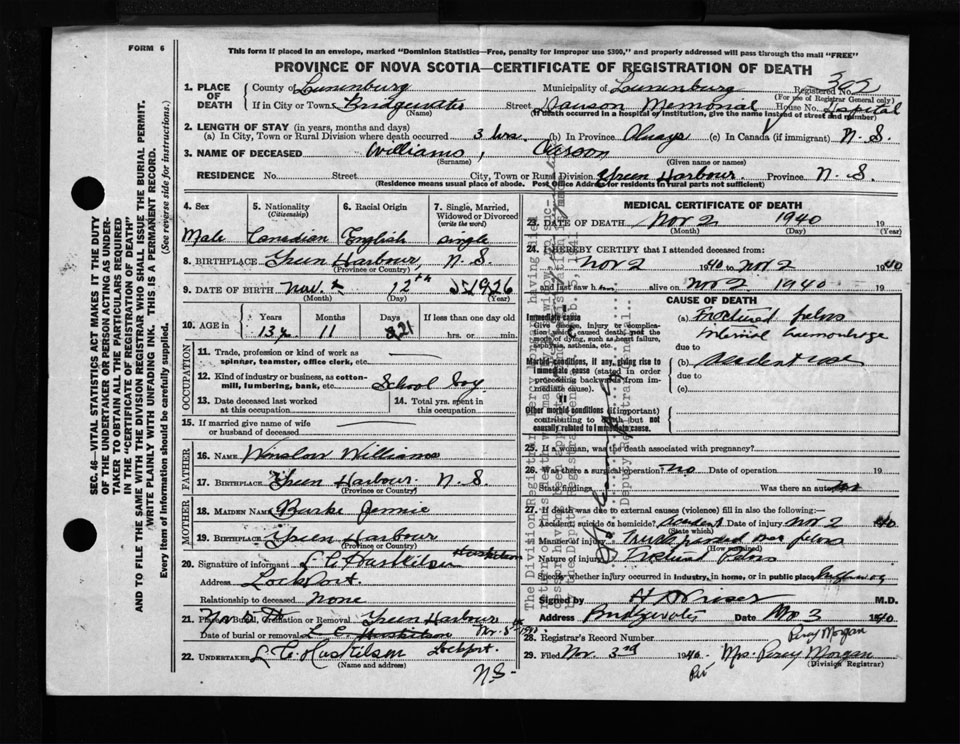 FORM 6
This form if placed in an envelope, marked "Dominion Statistics—Free, penalty for improper use $300," and properly addressed will pass through the mail "FREE"
PROVINCE OF NOVA SCOTIA—CERTIFICATE OF REGISTRATION OF DEATH
SEC. 46—VITAL STATISTICS ACT MAKES IT THE DUTY
OF THE UNDERTAKER OR PERSON ACTING AS UNDER-
TAKER TO OBTAIN ALL THE PARTICULARS REQUIRED
IN THE "CERTIFICATE OF REGISTRATION OF DEATH"
AND TO FILE THE SAME WITH THE DIVISION REGISTRAR WHO SHALL ISSUE THE BURIAL PERMIT.
WRITE PLAINLY WITH UNFADING INK. THIS IS A PERMANENT RECORD.
Every item of information should be carefully supplied. (See reverse side for instructions.)
1. PLACE OF DEATH
County of Lunenburg Municipality of Lunenburg Registered No. 302
(For use of Registrar General only)
If in City or Town Bridgewater Street Dawson Memorial House No. Hospital
(Name) (If death occurred in a hospital or institution, give the name instead of street and number)
2. LENGTH OF STAY (in years, months and days)
(a) In City, Town or Rural Division where death occurred 3 hrs. (b) In Province Always (c) In Canada (if immigrant) N. S.
3. NAME OF DECEASED Williams, Carson
(Surname) (Given name or names)
RESIDENCE No. Street City, Town or Rural Division Green Harbour. Province N. S.
(Residence means usual place of abode. Post Office Address for residents in rural parts not sufficient)
4. Sex Male
5. Nationality (Citizenship) Canadian
6. Racial Origin English
7. Single, Married, Widowed or Divorced (write the word) single
8. BIRTHPLACE Green Harbour, N. S.
(Province or Country)
9. DATE OF BIRTH Nov. 12th 1926
(Month) (Day) (Year)
10. AGE in Years Months Days If less than one day old
13 y 11 21 hrs. or min.
OCCUPATION
11. Trade, profession or kind of work as spinner, teamster, office clerk, etc.
12. Kind of industry or business, as cotton-mill, lumbering, bank, etc. School boy
13. Date deceased last worked at this occupation
14. Total yrs. spent in this occupation
15. If married give name of wife or husband of deceased
FATHER
16. NAME Winslow Williams
17. BIRTHPLACE Green Harbour. N. S.
(Province or Country)
MOTHER
18. MAIDEN NAME Burke Jennie
19. BIRTHPLACE Green Harbour
(Province or Country)
20. Signature of informant L C Huskilson Huskilson
Address Lockport.
Relationship to deceased None
21. Place of Burial, Cremation or Removal Green Harbour
Date of burial or removal L. C. Huskilson Nov. 5
22. UNDERTAKER L. C. Huskilson Lockport.
(Name and address) N S.
MEDICAL CERTIFICATE OF DEATH
23. DATE OF DEATH Nov 2 1940 19
(Month) (Day) (Year)
24. I HEREBY CERTIFY that I attended deceased from:
Nov 2 1940 to Nov 2 1940
and last saw h alive on Nov 2 1940
CAUSE OF DEATH
Immediate cause
Give disease, injury or complication which caused death, not the mode of dying, such as heart failure, asphyxia, asthenia, etc.
Morbid conditions, if any, giving rise to immediate cause (stated in order proceeding backwards from immediate cause).
Other morbid conditions (if important) contributing to death but not causally related to immediate cause.
(a) Fractured pelvis
due to Internal hemorrhage
(b) Accident
due to
(c)
25. If a woman, was the death associated with pregnancy?
26. Was there a surgical operation? no Date of operation 19
State findings Was there an autopsy
27. If death was due to external causes (violence) fill in also the following:
Accident, suicide or homicide? Accident Date of injury Nov 2 1940
(State which)
Manner of injury Truck passed over pelvis
(How sustained)
Nature of injury Fractured Pelvis
Specify whether injury occurred in industry, in home, or in public place highway
Signed by M.D.
Address Bridgewater Date Nov 3 1940
28. Registrar's Record Number Percy Morgan
29. Filed Nov. 3rd 1940. Mrs. Percy Morgan
Per (Division Registrar)